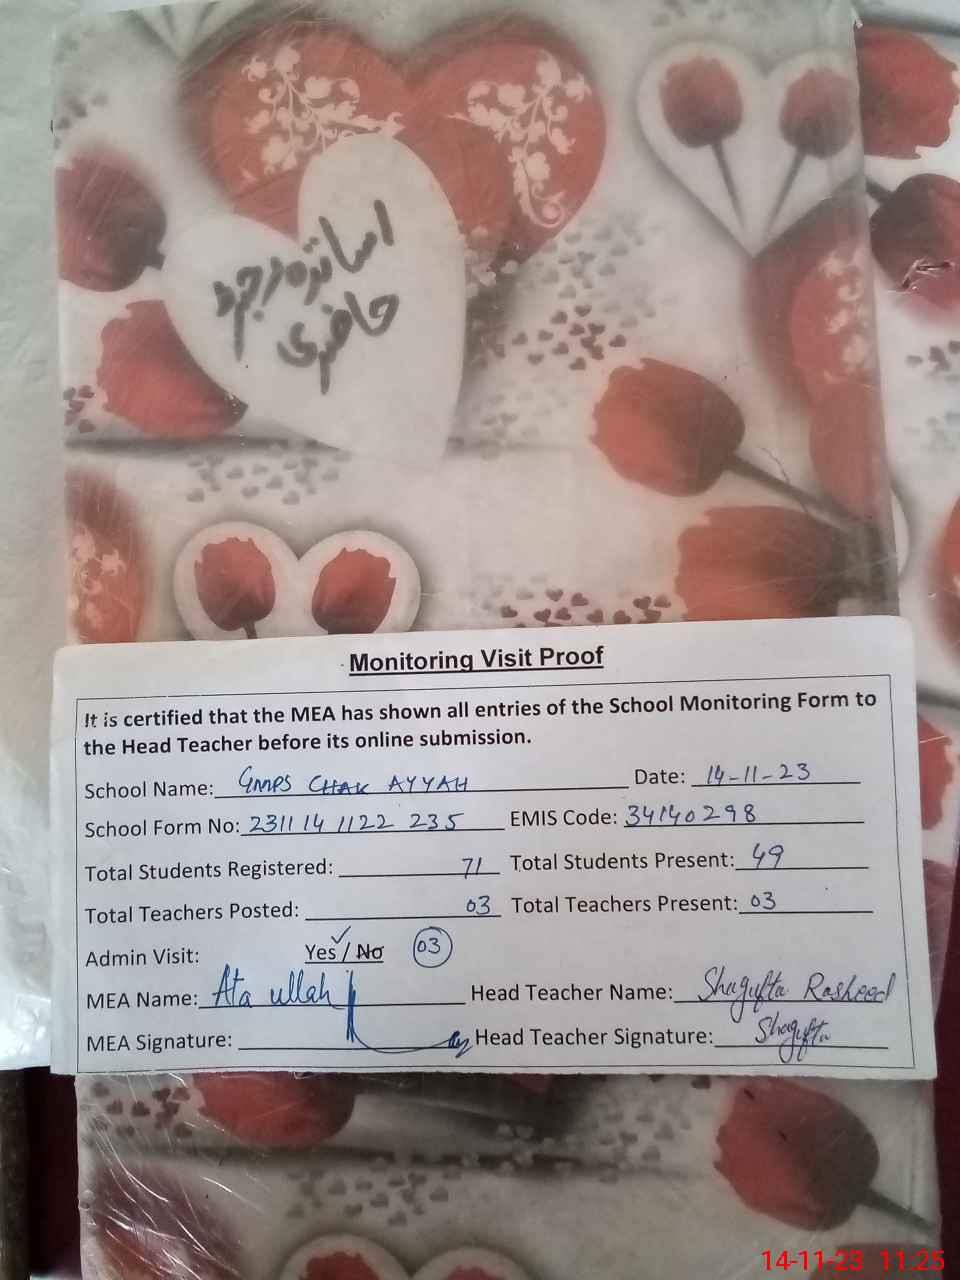 اساتذہ رجسٹر
حاضری
Monitoring Visit Proof
It is certified that the MEA has shown all entries of the School Monitoring Form to
the Head Teacher before its online submission.
School Name: GMPS CHAK AYYAH Date: 14-11-23
School Form No: 2311 14 1122 235 EMIS Code: 34140298
Total Students Registered: 71 Total Students Present: 49
Total Teachers Posted: 03 Total Teachers Present: 03
Admin Visit: Yes ✓ / No 03
MEA Name: Ata ullah Head Teacher Name: Shagufta Rasheed
MEA Signature: Head Teacher Signature: Shagufta
14-11-23 11:25